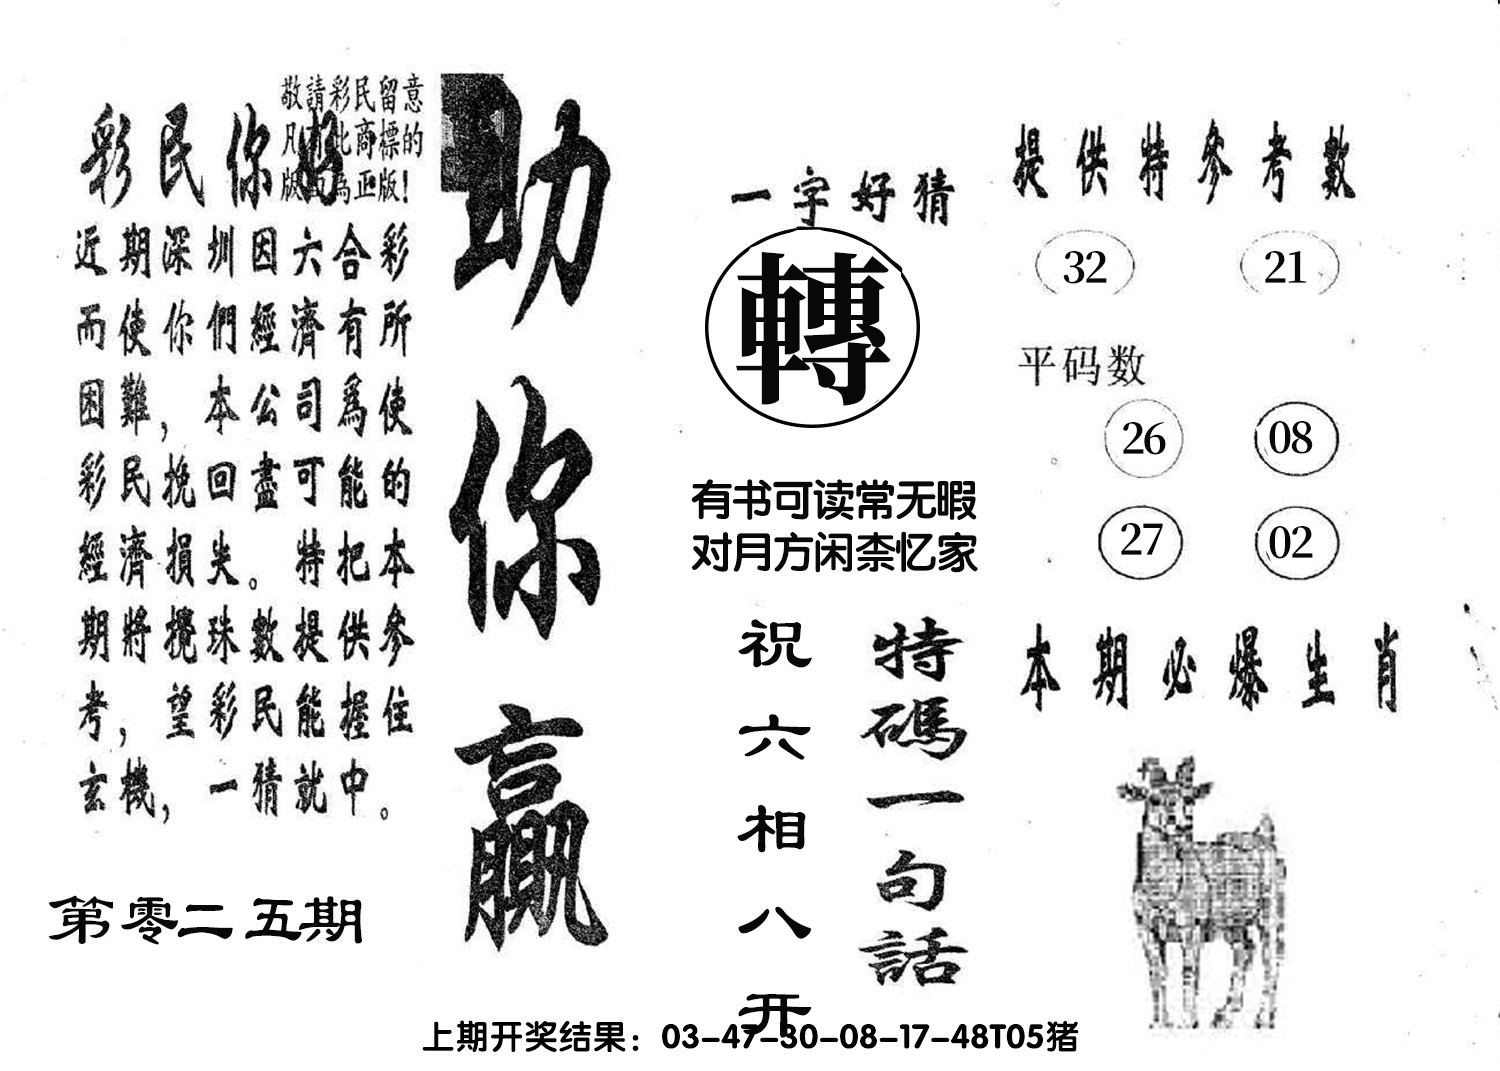 敬請彩民留意
凡有此商標的
版面為正版！
彩民你好
近期深圳因六合彩
而使你們經濟有所
困難，本公司爲使
彩民挽回盡可能的
經濟損失。特把本
期將攪珠數提供參
考，望彩民能握住
玄機，一猜就中。
第零二五期
助你贏
一字好猜
轉
有书可读常无暇
对月方闲柰忆家
特碼一句話
祝六相八开
提供特參考數
32 21
平码数
26 08
27 02
本期必爆生肖
上期开奖结果：03-47-30-08-17-48T05猪